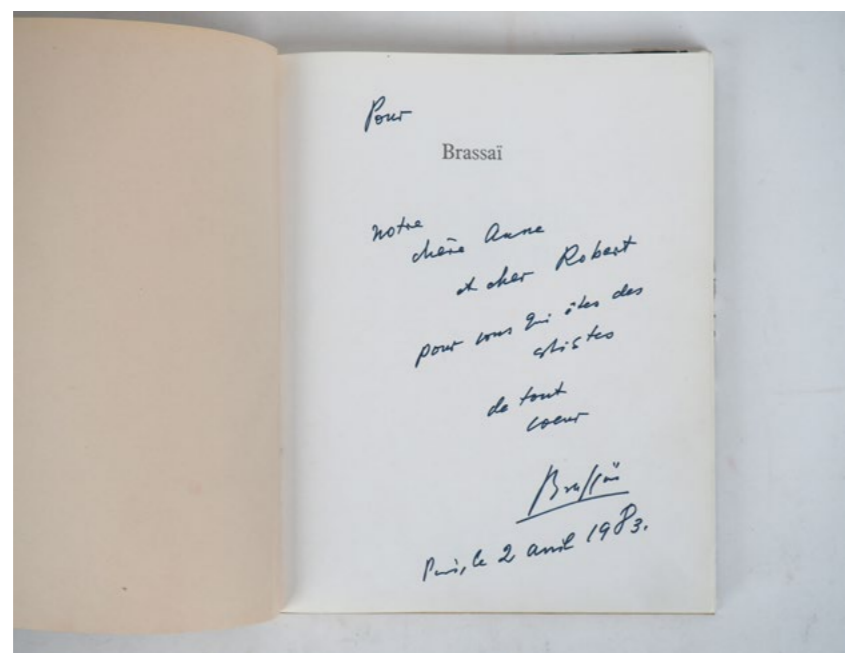 Pour
Brassaï
notre
chère Anne
et cher Robert
pour vous qui êtes des
artistes
de tout
coeur
Brassaï
Paris, le 2 avril 1983.